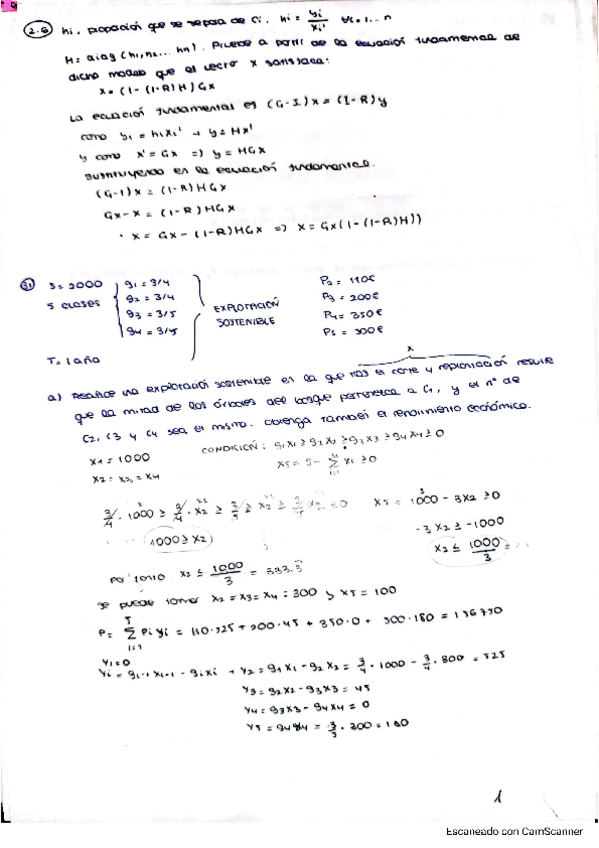 2.6 hi, proporción que se separa de Ci. hi = yi/xi' ∀i=1... n
H = diag (h1, h2... hn). Pruebe a partir de la ecuación fundamental de
dicho modelo que el vector x satisface:
x = (I - (I-R)H)Gx
La ecuación fundamental es (G-I)x = (I-R)y
como yi = hixi' → y = Hx'
y como x' = Gx => y = HGx
sustituyendo en la ecuación fundamental.
(G-I)x = (I-R)HGx
Gx-x = (I-R)HGx
· x = Gx - (I-R)HGx => x = Gx(I-(I-R)H))
31 S = 2000
5 CLASES
g1 = 3/4
g2 = 3/4
g3 = 3/5
g4 = 3/5
EXPLOTACIÓN
SOSTENIBLE
P2 = 110€
P3 = 200€
P4 = 350€
P5 = 300€
T = 1 año
x
a) Realice una explotación sostenible en la que tras el corte y repoblación resulte
que la mitad de los árboles del bosque pertenezca a C1, y el nº de
C2, C3 y C4 sea el mismo. Obtenga también el rendimiento económico.
x1 = 1000
x2 = x3 = x4
CONDICIÓN: g1x1 ≥ g2x2 ≥ g3x3 ≥ g4x4 ≥ 0
3/4 · 1000 ≥ 3/4 · x2 ≥ 3/5 x2 ≥ 3/5 x2 ≥ 0
x5 = 1000 - 3x2 ≥ 0
1000 ≥ x2
-3x2 ≥ -1000
x2 ≤ 1000/3
Por tanto x2 ≤ 1000/3 = 333.3
se puede tomar x2 = x3 = x4 = 300 y x5 = 100
P = Σ Piyi = 110·525 + 200·45 + 350·0 + 300·180 =
y1 = 0
yi = gi-1 xi-1 - gixi → y2 = g1x1 - g2x2 = 3/4 · 1000 - 3/4 · 300 = 525
y3 = g2x2 - g3x3 = 45
y4 = g3x3 - g4x4 = 0
y5 = g4x4 = 180
1
Escaneado con CamScanner